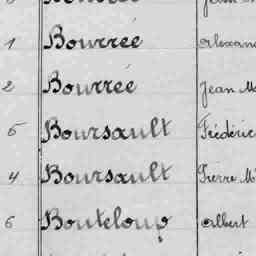 1 Bourrée
2 Bourrée Jean M
5 Boursault Frédéric
4 Boursault Pierre M
6 Bouteloup Albert